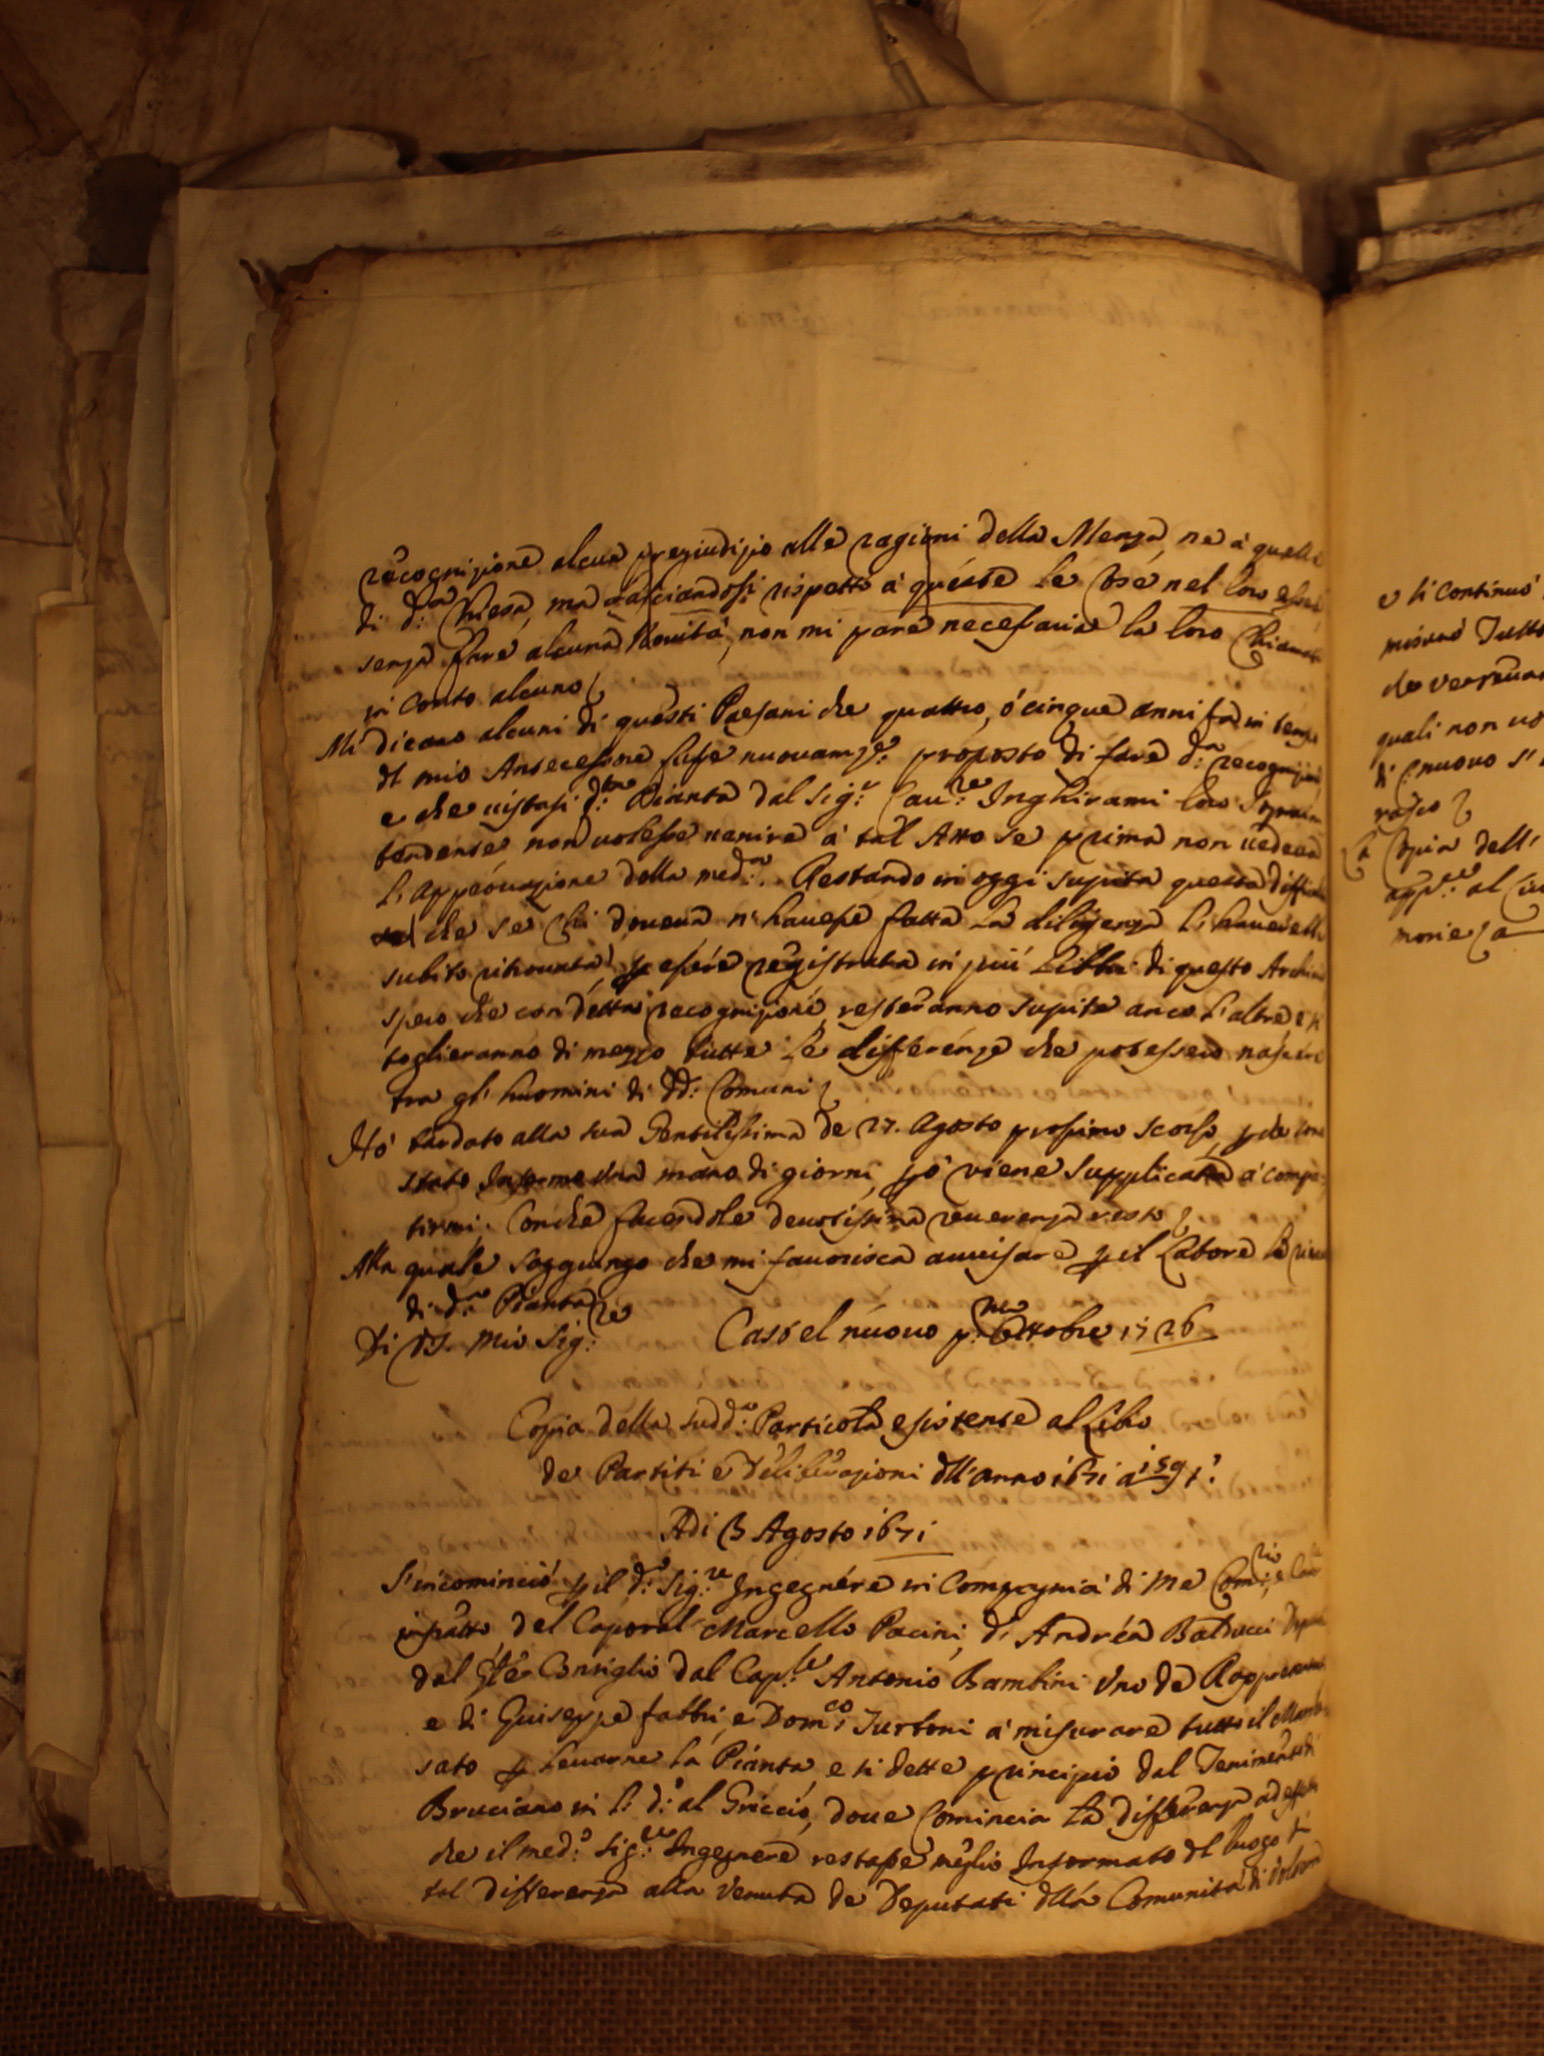 recognizione alcun pregiudizio alle ragioni della Mensa, ne à quelle
di d.ᵃ Chiesa, ma lasciandosi rispetto à queste le cose nel loro
senza fare alcuna Novità, non mi pare necessaria la loro
in conto alcuno
Mi dicano alcuni di questi Paesani che quattro, ó cinque anni fà in tempo
dl mio Antecessore fusse nuovam.ᵗᵉ proposto di fare d.ᵃ recognizione
e che vistasi d.ᵗᵃ Pianta dal Sig.ʳ Cav.ʳᵉ Inghirami loro
tendente non volesse venire à tal Atto se prima non vedeva
l'approvazione della med.ᵃ. Restando in oggi supita questa
che se Chi doveva n'havesse fatta la diligenza l'haverebbe
subito ritrovata p essere registrata in più Libbri di questo Archivio
spero che con detta recognizione resteranno supite anco l'altre e si
toglieranno di mezzo tutte le differenze che potessero nascere
tra gl'huomini di dd.ⁱ Comuni
Hó tardato alla sua Gentilissima de 27. Agosto prossimo scorso, p che sono
stato Infermo una mano di giorni, p ó viene supplicata à compa-
tirmi. Con che facendole devotissima reverenza resto
Alla quale soggiungo che mi favorisca avvisare p il Latore la
di d.ᵃ Pianta
Di VS. Mio Sig.ʳᵉ Castel nuovo p.ᵐᵒ Ottobre 1726
Copia della sudd.ᵃ Particola esistente al Libro
de Partiti e Deliberazioni dll'anno 1671 a 159 t.º
Adi 13 Agosto 1671
S'incominció p il d.º Sig.ʳᵉ Ingegnere in Compagnia di Me
del Caporal Marcello Pacini, d'Andrea Balducci
dal Gñle Consiglio dal Cap.ˡᵉ Antonio Bambini Uno de
e di Guiseppe fabbri, e Dom.ᶜᵒ Turboni à misurare tutto il
sato p levarne la Pianta, e si dette principio dal Tenimento di
Bruciano in l. d.º al Griccio, dove Comincia la differenza
che il med.º Sig.ʳᵉ Ingegnere restasse meglio Informato dl luogo
tal differenza alla Venuta de Deputati dlla Comunità di
e si continuò
misurò Tutto
quali non
di nuovo s'
Copia dell'
app.ᵗᵉ al
morie